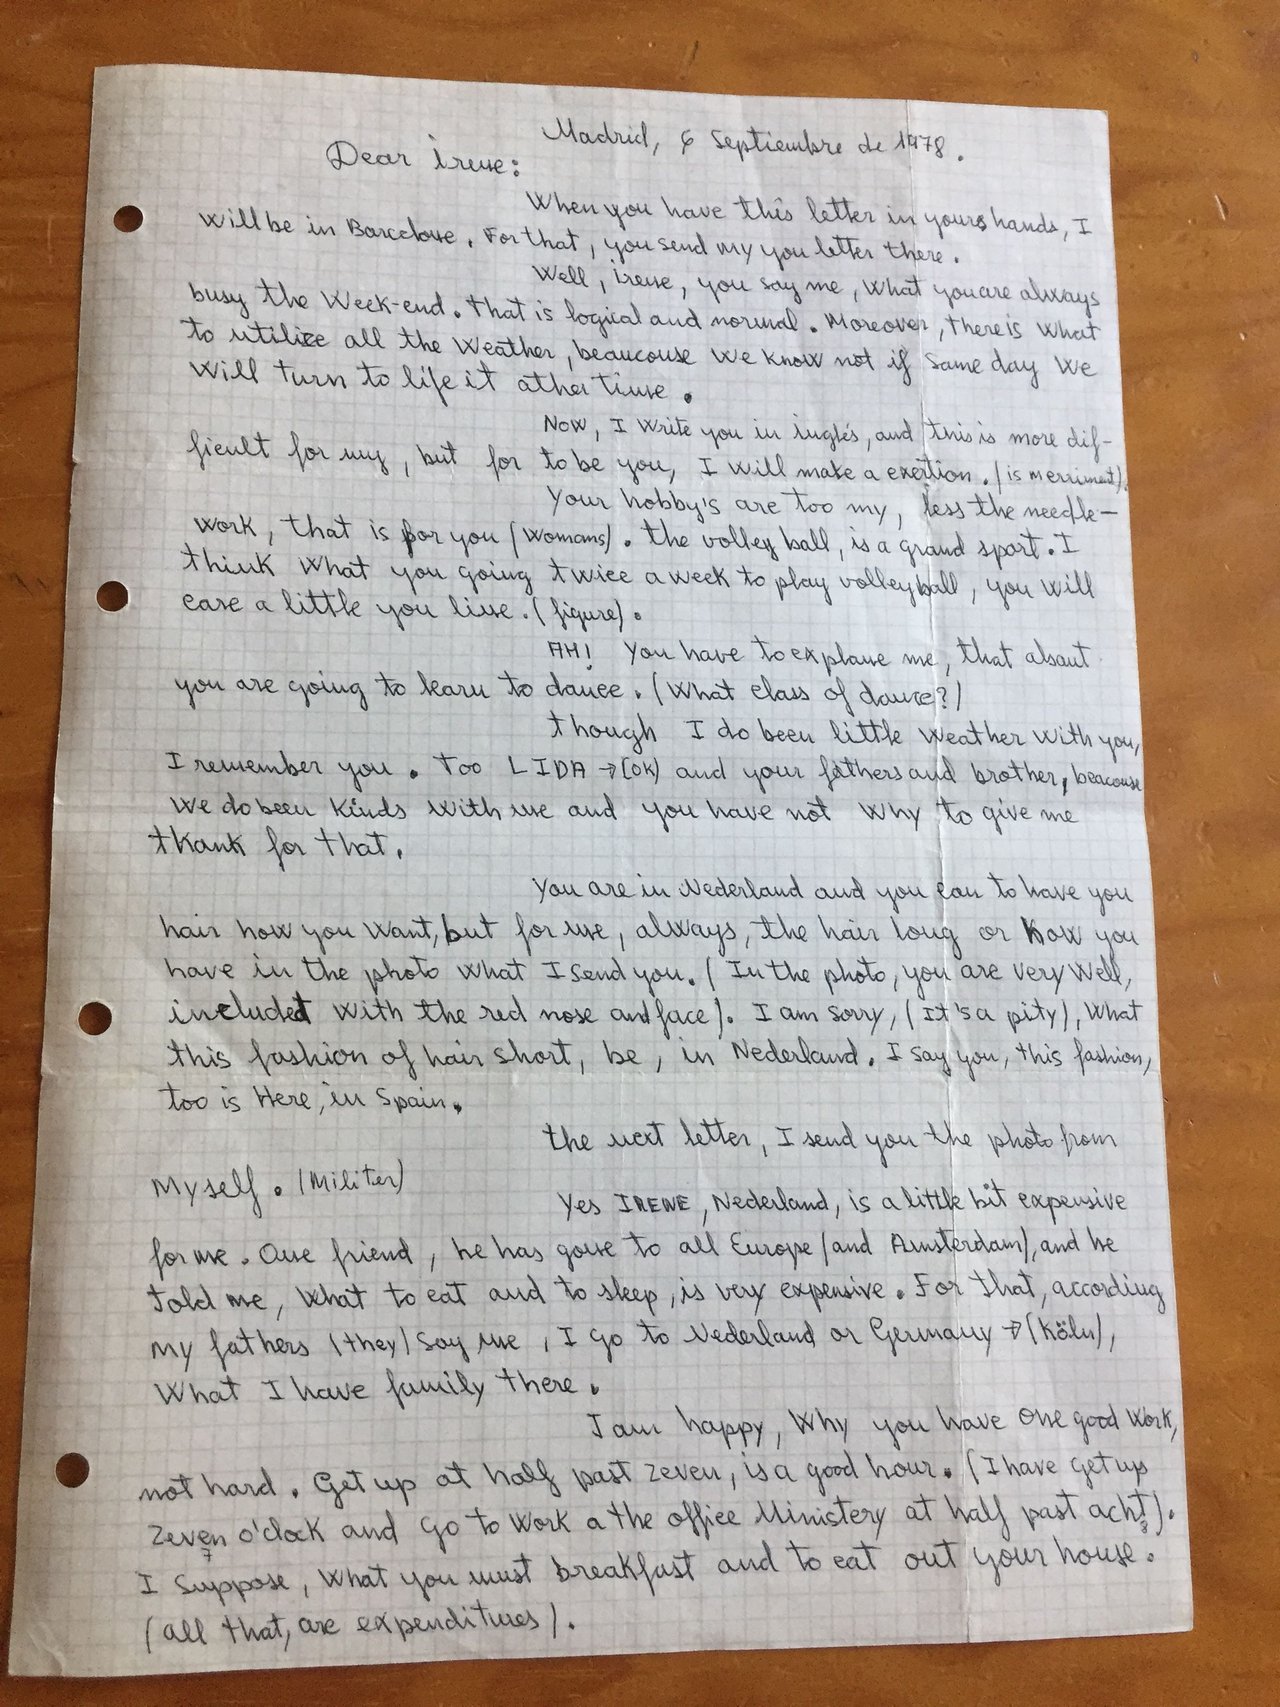 Madrid, 6 Septiembre de 1978.
Dear irene:
When you have this letter in yours hands, I
will be in Barcelone. For that, you send my you letter there.
Well, irene, you say me, what you are always
busy the week-end. that is logical and normal. Moreover, there is what
to utilize all the weather, beaucouse we know not if same day we
will turn to life it ather time.
Now, I write you in inglés, and this is more dif-
ficult for my, but for to be you, I will make a exertion. (is merriment).
Your hobby's are too my, less the needle-
work, that is for you (womans). the volley ball, is a grand sport. I
think what you going twice a week to play volleyball, you will
care a little you line. (figure).
AH! You have to explane me, that absaut
you are going to learn to dance. (What class of dance?)
though I do been little weather with you,
I remember you. too LIDA → (OK) and your fathers and brother, beacouse
we do been kinds with me and you have not why to give me
thank for that.
You are in Nederland and you can to have you
hair how you want, but for me, always, the hair long or how you
have in the photo what I send you. (In the photo, you are very well,
included with the red nose and face). I am sorry, (It's a pity), what
this fashion of hair short, be, in Nederland. I say you, this fashion,
too is Here, in Spain.
the next letter, I send you the photo from
Myself. (Militer)
Yes IRENE, Nederland, is a little bit expensive
for me. One friend, he has gone to all Europe (and Amsterdam), and he
told me, what to eat and to sleep, is very expensive. For that, according
my fathers (they) say me, I go to Nederland or Germany → (Köln),
what I have family there.
I am happy, why you have one good work,
not hard. Get up at half past zeven, is a good hour. (I have get up
zeven o'clock and go to work a the office Ministery at half past acht).
7 8
I suppose, what you must breakfast and to eat out your house.
(all that, are expenditures).